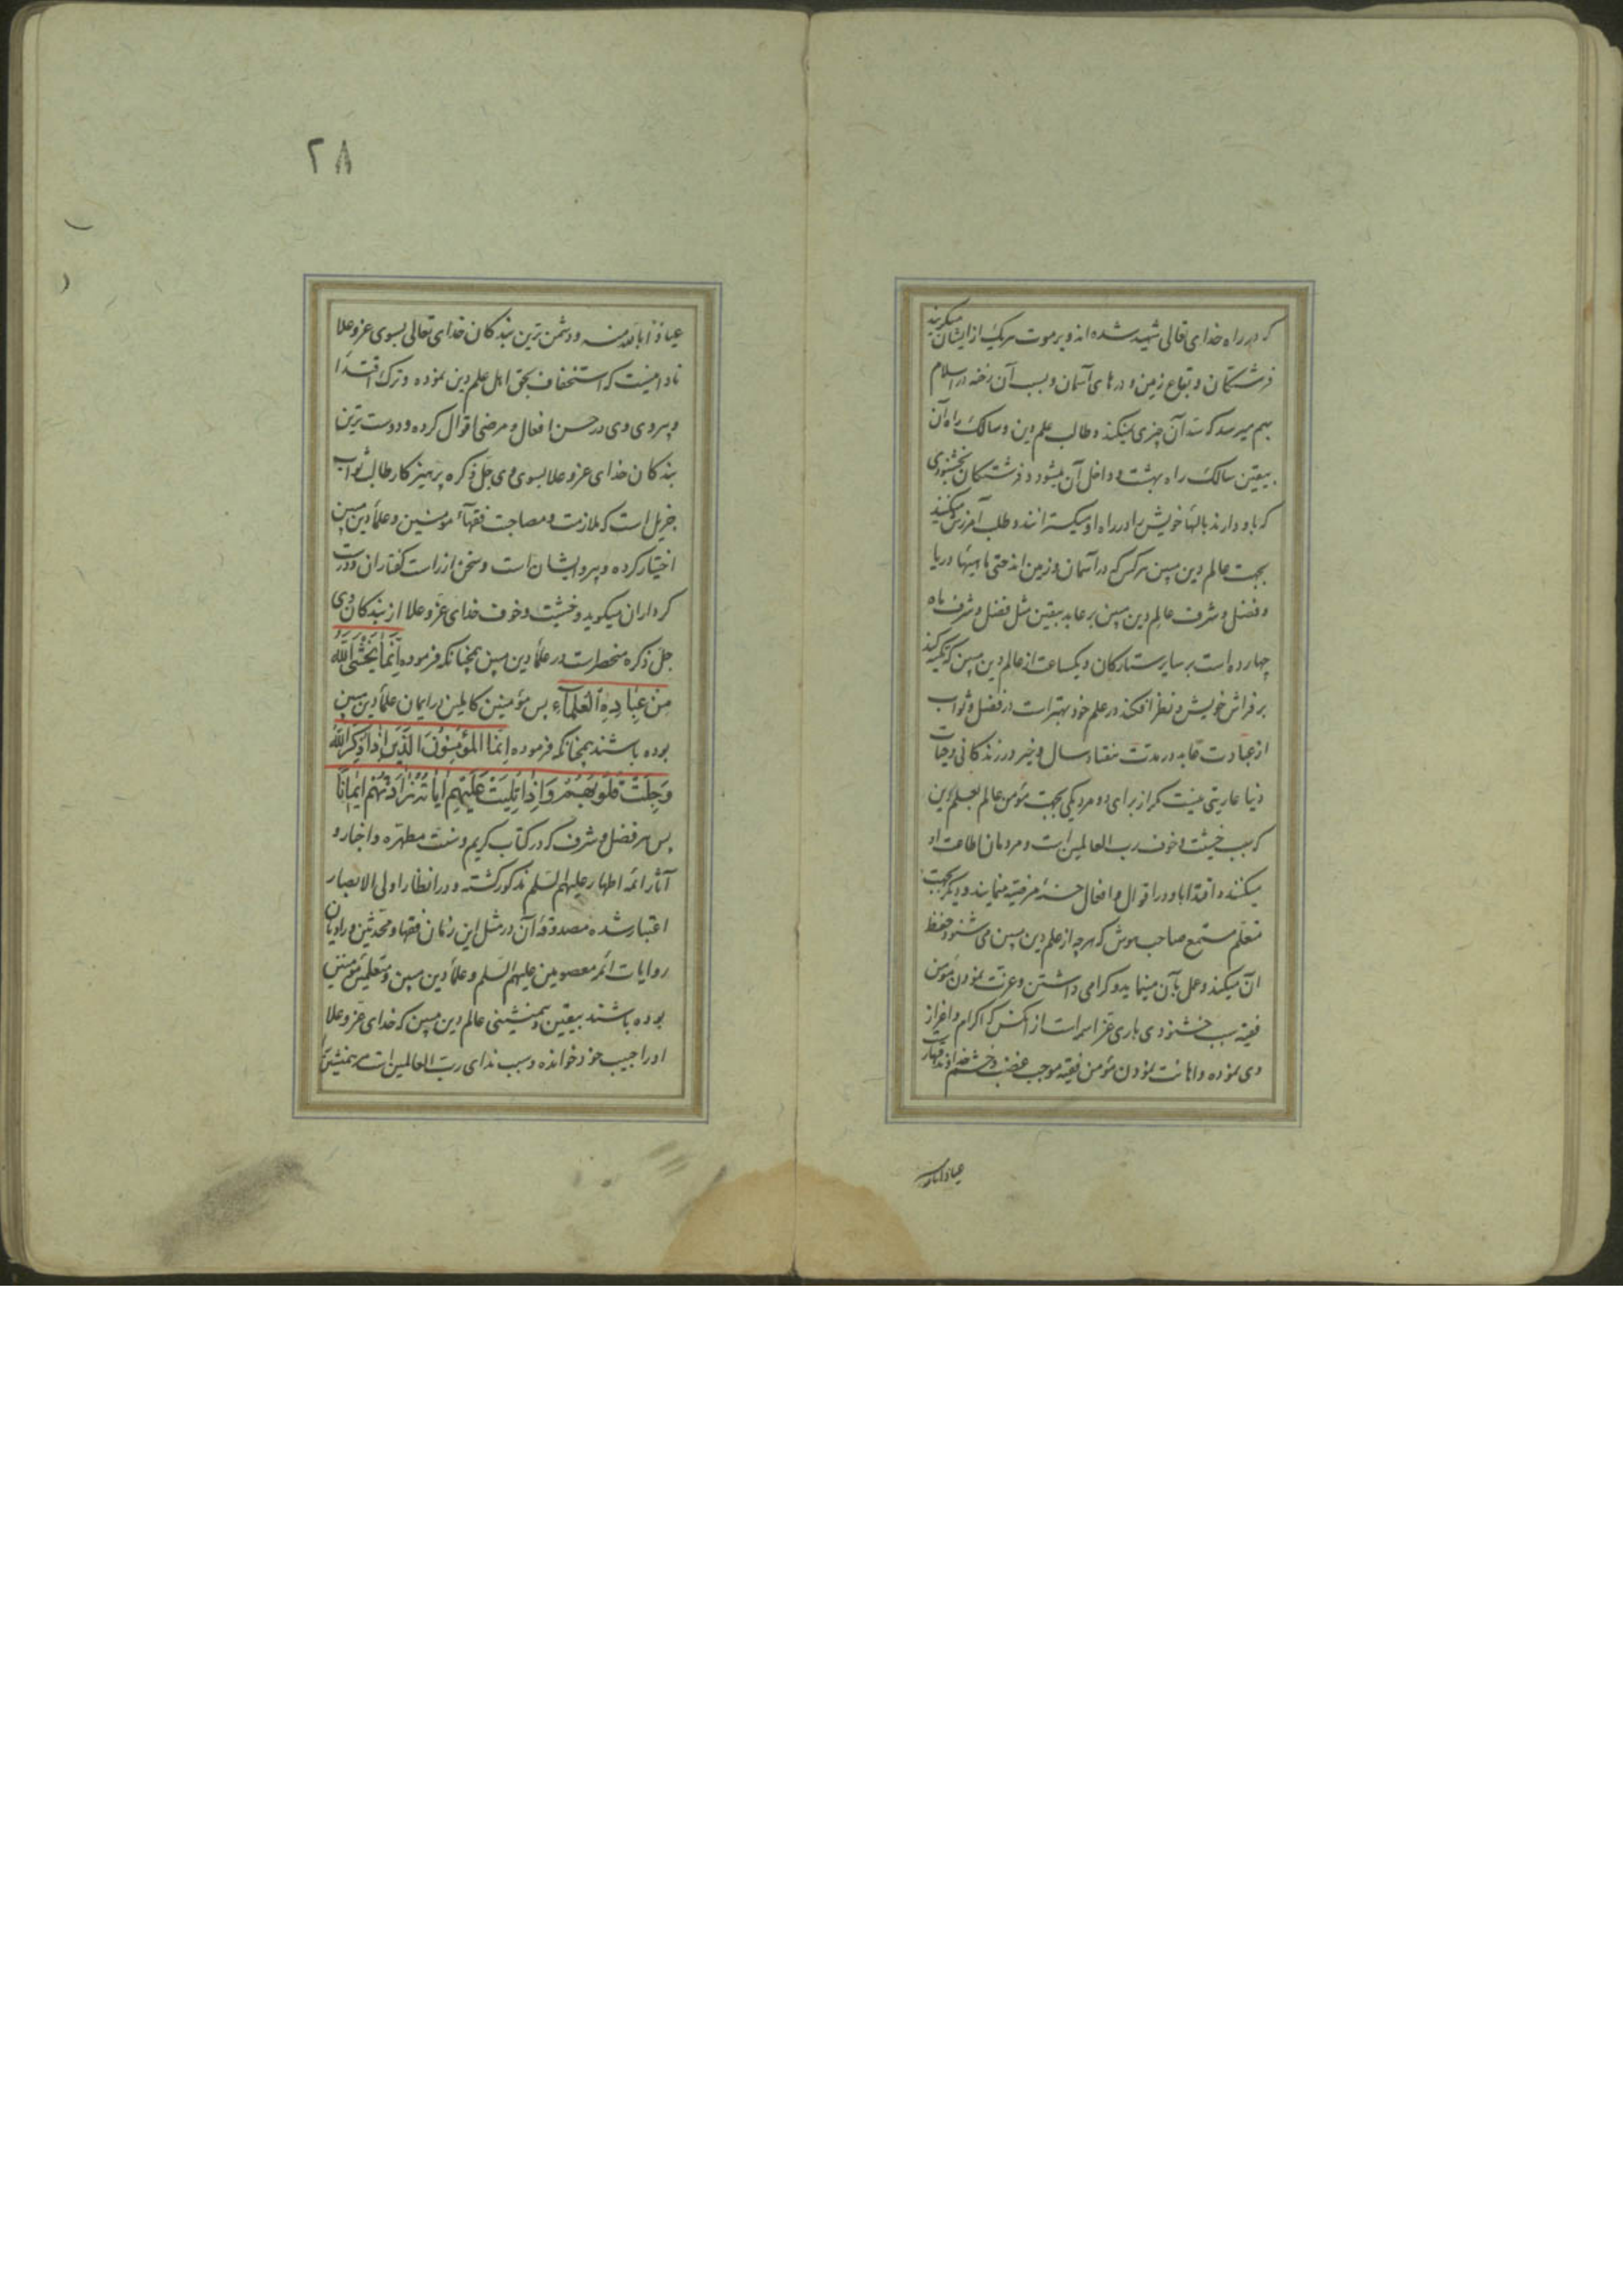 که در راه خدای تعالی شهید شده اند و بر موت هریک از ایشان میگریند
فرشتگان و بقاع زمین و درهای آسمان و بسبب آن رخنه در اسلام
بهم میرسد که سد آن چیزی نمیکند و طالب علم دین و سالک راه آن
بیقین سالک راه بهشت و داخل آن میشود و فرشتگان بخشنودی
که باو دارند بالها خویش را در راه او میگسترانند و طلب آمرزش میکنند
بجهت عالم دین مبین هر کس که در آسمان و زمین اند حتی ماهیها دریا
و فضل و شرف عالم دین مبین بر عابد بیقین مثل فضل و شرف ماه
چهارده است بر سایر ستارگان و یکساعت از عالم دین مبین که تکیه کند
بر فراش خویش و نظر افکند در علم خود بهتر است در فضل و ثواب
از عبادت عابد در مدت هفتاد سال و خیر در زندکانی و حیات
دنیا عاریتی نیست مکر از برای دو مرد یکی بجهت مؤمن عالم بعلم دین
که بسبب خشیت و خوف رب العالمین است و مردمان اطاعت او
میکنند و اقتدا باو در اقوال و افعال حسنه مرضیه مینمایند و دیگر بجهت
متعلم مستمع صاحب هوش که هرچه از علم دین مبین می شنود حفظ
آن میکند و عمل بآن مینماید و کرامی داشتن و عزت نمودن مؤمن
فقیه سبب خشنودی باری عز اسمه است از آنکس که اکرام و اعزاز
وی نموده و اهانت نمودن مؤمن فقیه موجب غضب و خشم خداوند قهار است
عیاذا بالله منه
۲۸
عیاذا بالله منه و دشمن ترین بندکان خدای تعالی بسوی عز و علا
نادانیست که استخفاف بحق اهل علم دین نموده و ترک اقتدا
و پیروی وی در حسن افعال و مرضی اقوال کرده و دوست ترین
بندکان خدای عز و علا بسوی وی جل ذکره پرهیزکار طالب ثواب
جزیل است که ملازمت و مصاحبت فقهآء مؤمنین و علمآ دین مبین
اختیار کرده و پیرو ایشان است و سخن از راست کفتاران و درست
کرداران میکوید و خشیت و خوف خدای عز و علا از بندکان وی
جل ذکره منحصر است در علمآ دین مبین همچنانکه فرموده اِنَّمٰا یَخْشَی اللّٰهَ
مِنْ عِبٰادِهِ الْعُلَمٰآءِ پس مؤمنین کاملین در ایمان علمآ دین مبین
بوده باشند همچنانکه فرموده اِنَّمَا الْمُؤْمِنُونَ الَّذِینَ اِذٰا ذُکِرَ اللّٰهُ
وَجِلَتْ قُلُوبُهُمْ وَاِذٰا تُلِیَتْ عَلَیْهِمْ اٰیٰاتُهُ زٰادَتْهُمْ اِیمٰانًا
پس هر فضل و شرف که در کتاب کریم و سنت مطهره و اخبار و
آثار ائمه اطهار علیهم السلم مذکور کشته و در انظار اولی الابصار
اعتبار شده مصدوقه آن در مثل این زمان فقها و محدثین و راویان
روایات ائمه معصومین علیهم السلم و علمآ دین مبین و متعلمین مؤمنین
بوده باشند بیقین و همنشینی عالم دین مبین که خدای عز و علا
او را حبیب خود خوانده و سبب ندای رب العالمین است همنشین